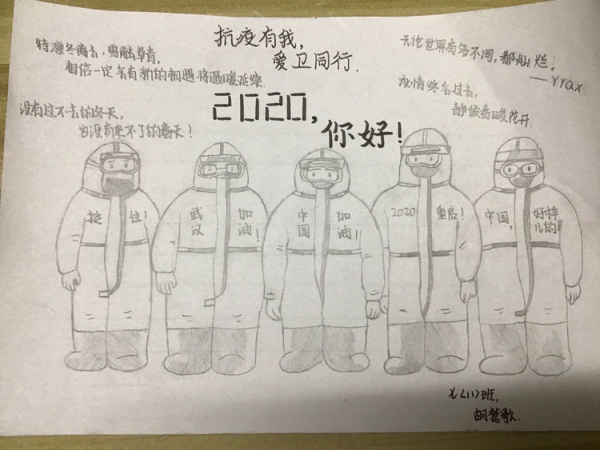 抗疫有我，
爱卫同行.
待凛冬离去，雪融草青，
相信一定会有新的相遇将温暖延续.
没有过不去的冬天，
也没有来不了的春天！
2020，
你好！
无论世界有多不同，都
灿烂。
——YYQX
疫情终会过去，
静候春暖花开.
挺住！
武汉
加油！
中国
加油！！
2020
重启！
中国，
好样
儿的！
七〈11〉班，